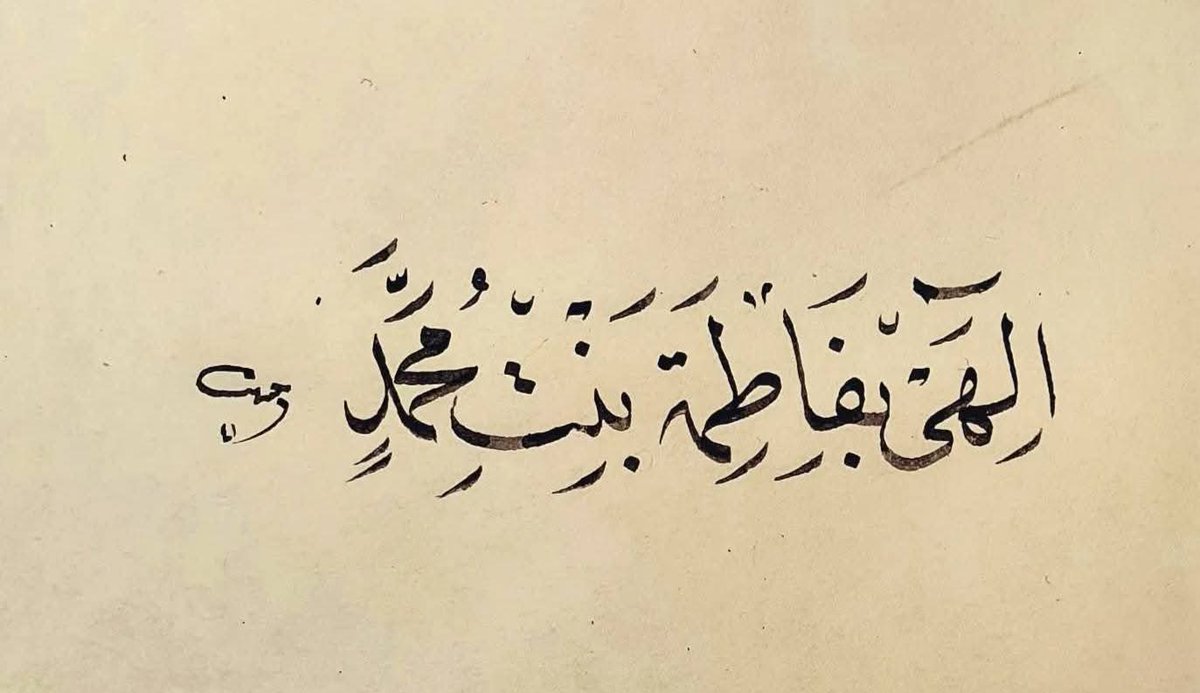 اِلٰهَي بِفَاطِمَة بَنِتِ مُحَمَّدٍ